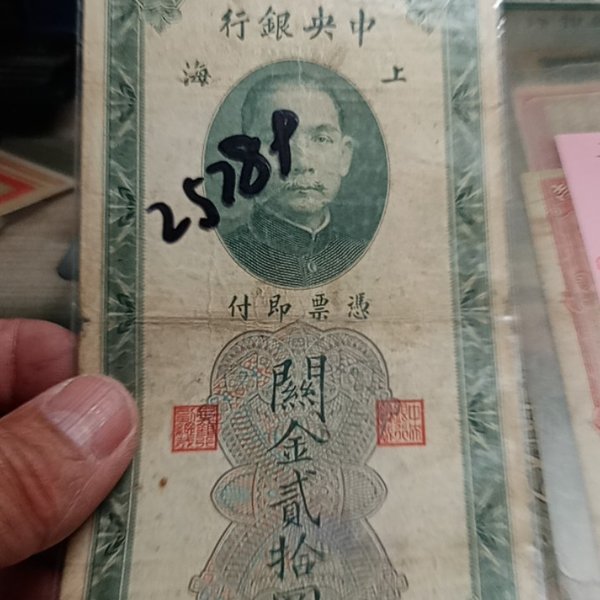 中央銀行
上海
25789
憑票即付
關金貳拾